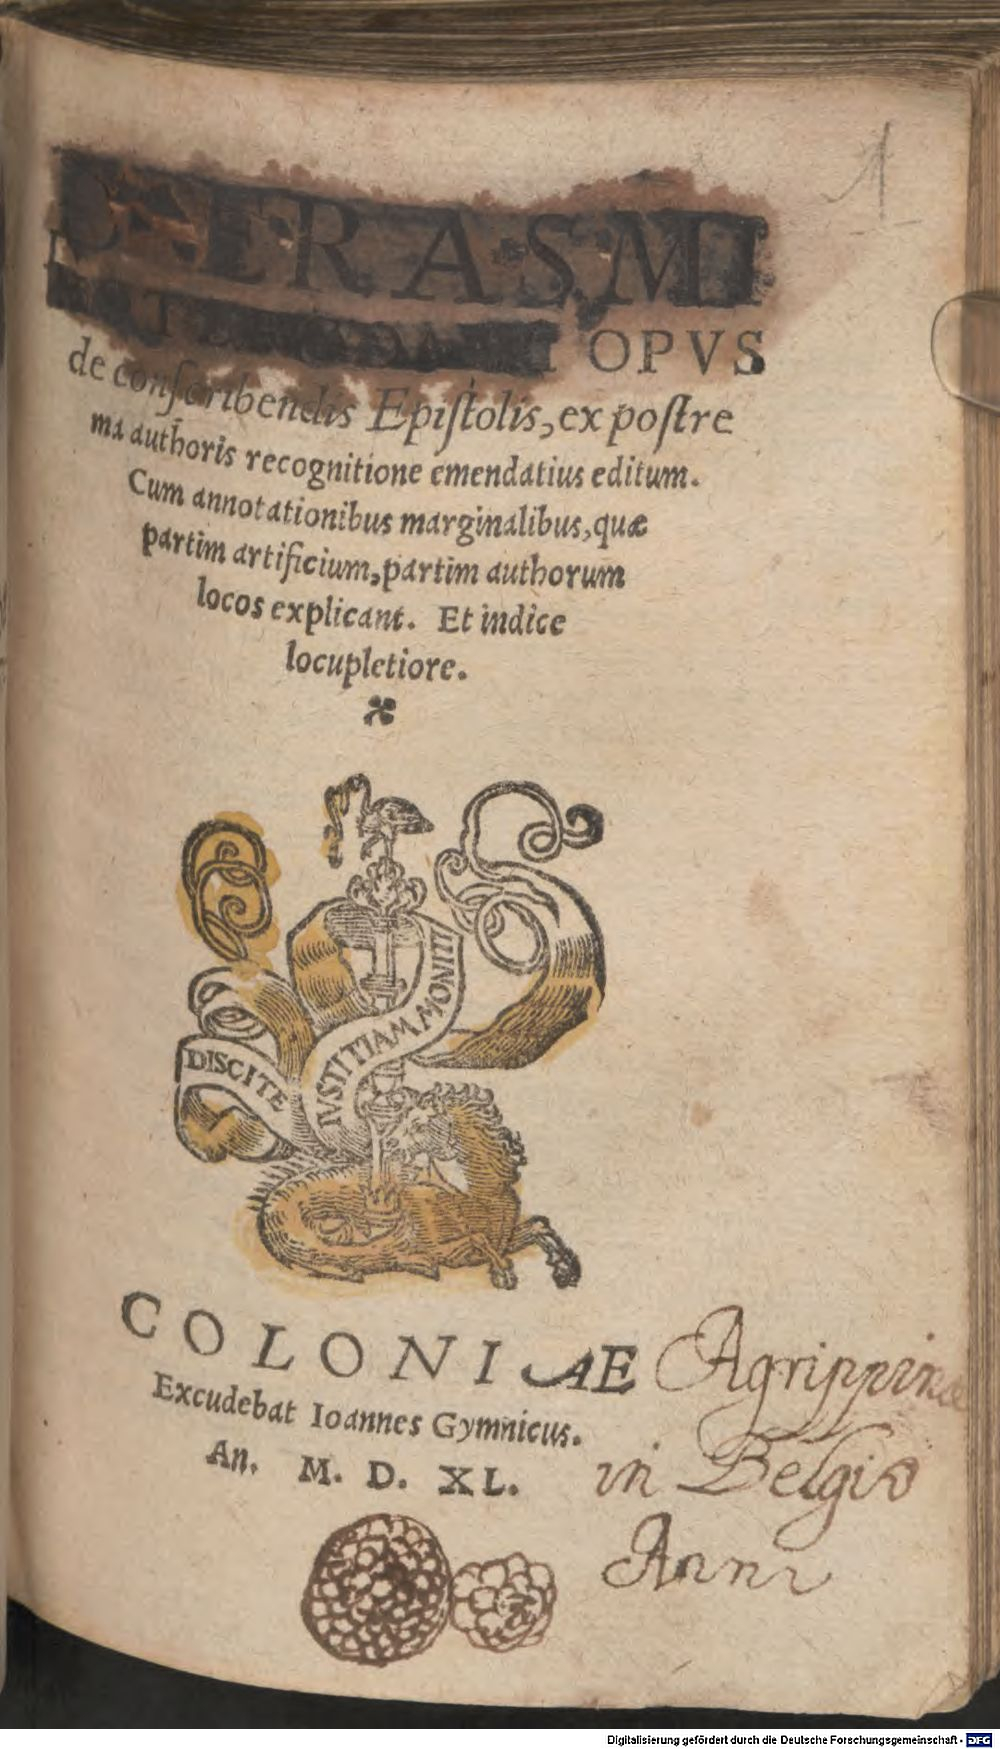 1
D. ERASMI
ROTERODAMI OPVS
de conſcribendis Epiſtolis, ex poſtre
ma authoris recognitione emendatius editum.
Cum annotationibus marginalibus, quæ
partim artificium, partim authorum
locos explicant. Et indice
locupletiore.
DISCITE IVSTITIAM MONITI
COLONIAE Agrippinæ
Excudebat Ioannes Gymnicus.
in Belgio
An. M. D. XL.
Anni
Digitalisierung gefördert durch die Deutsche Forschungsgemeinschaft - DFG